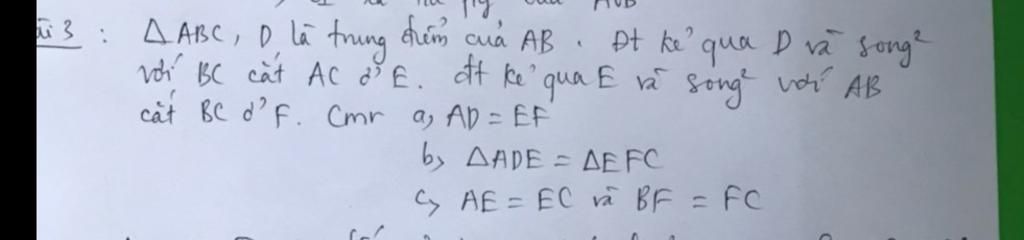 ài 3 : △ABC, D là trung điểm của AB. Đt kẻ qua D và song²
với BC cắt AC ở E. đt kẻ qua E và song² với AB
cắt BC ở F. Cmr a, AD = EF
b, △ADE = △EFC
c, AE = EC và BF = FC